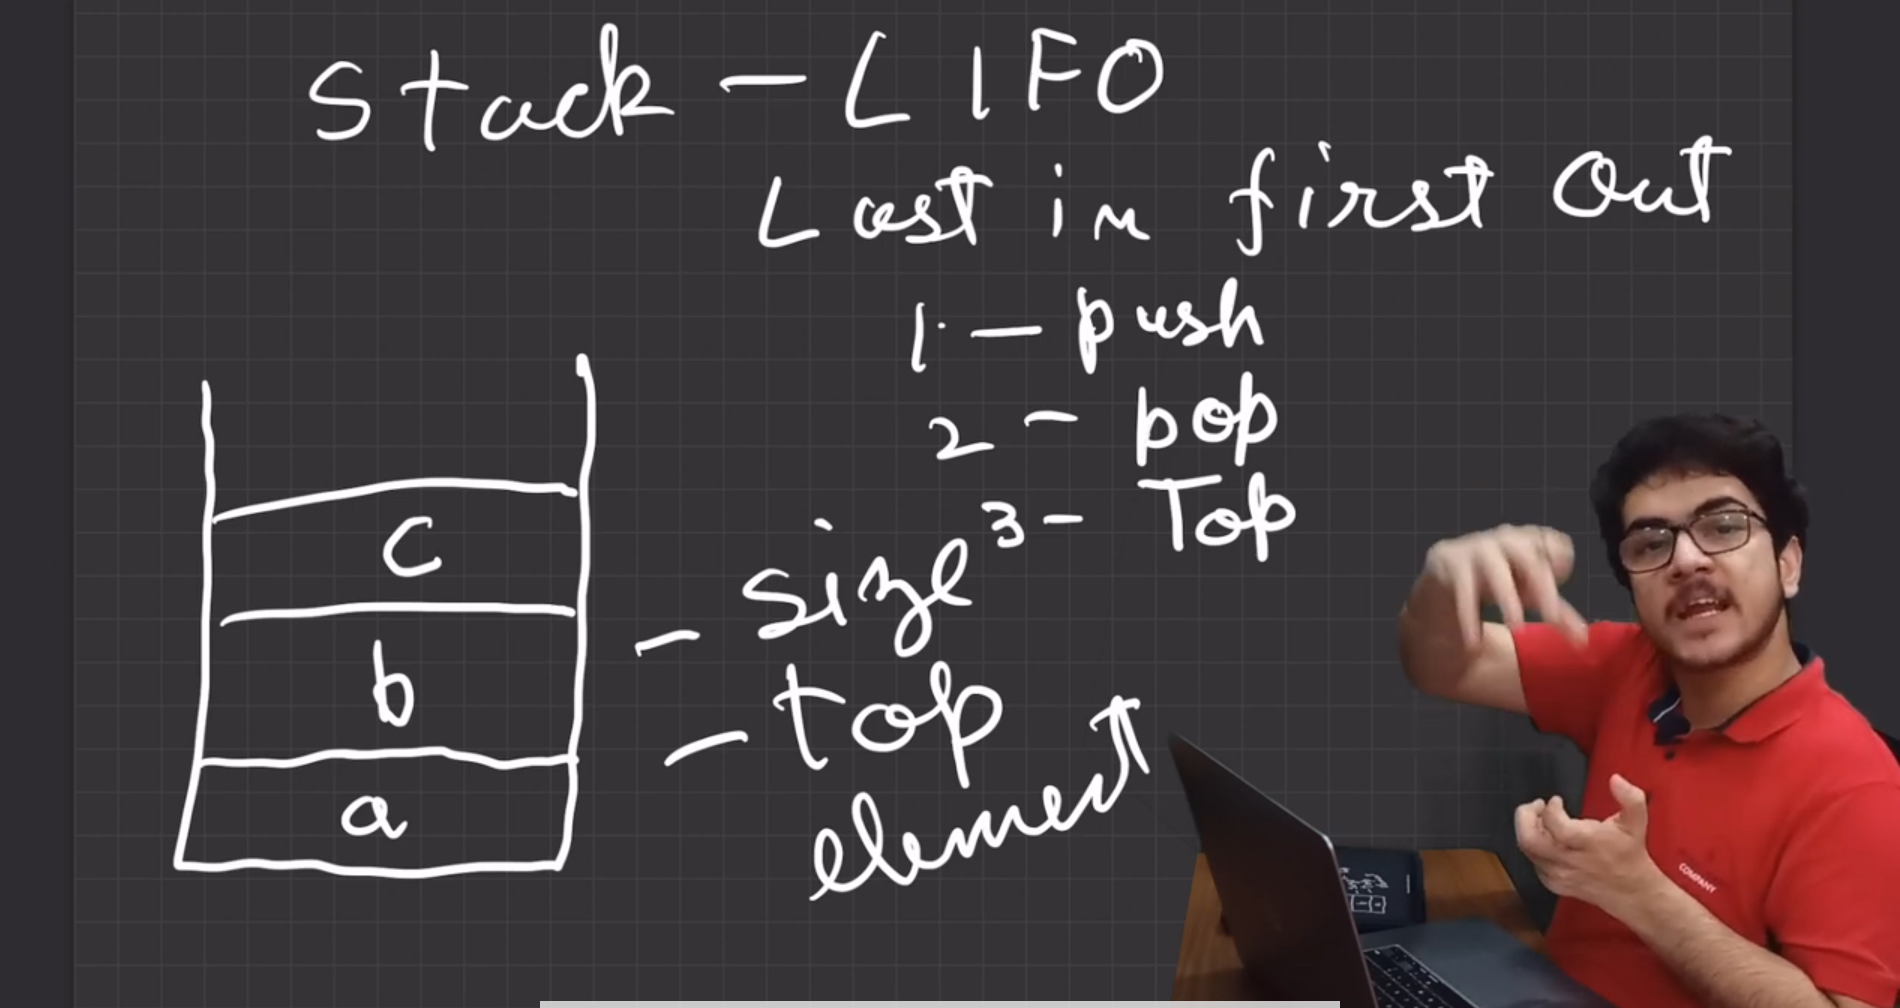 Stack - LIFO
Last in first Out
1 - push
2 - pop
3 - Top
c
b
a
- size
- top
element
COMPANY